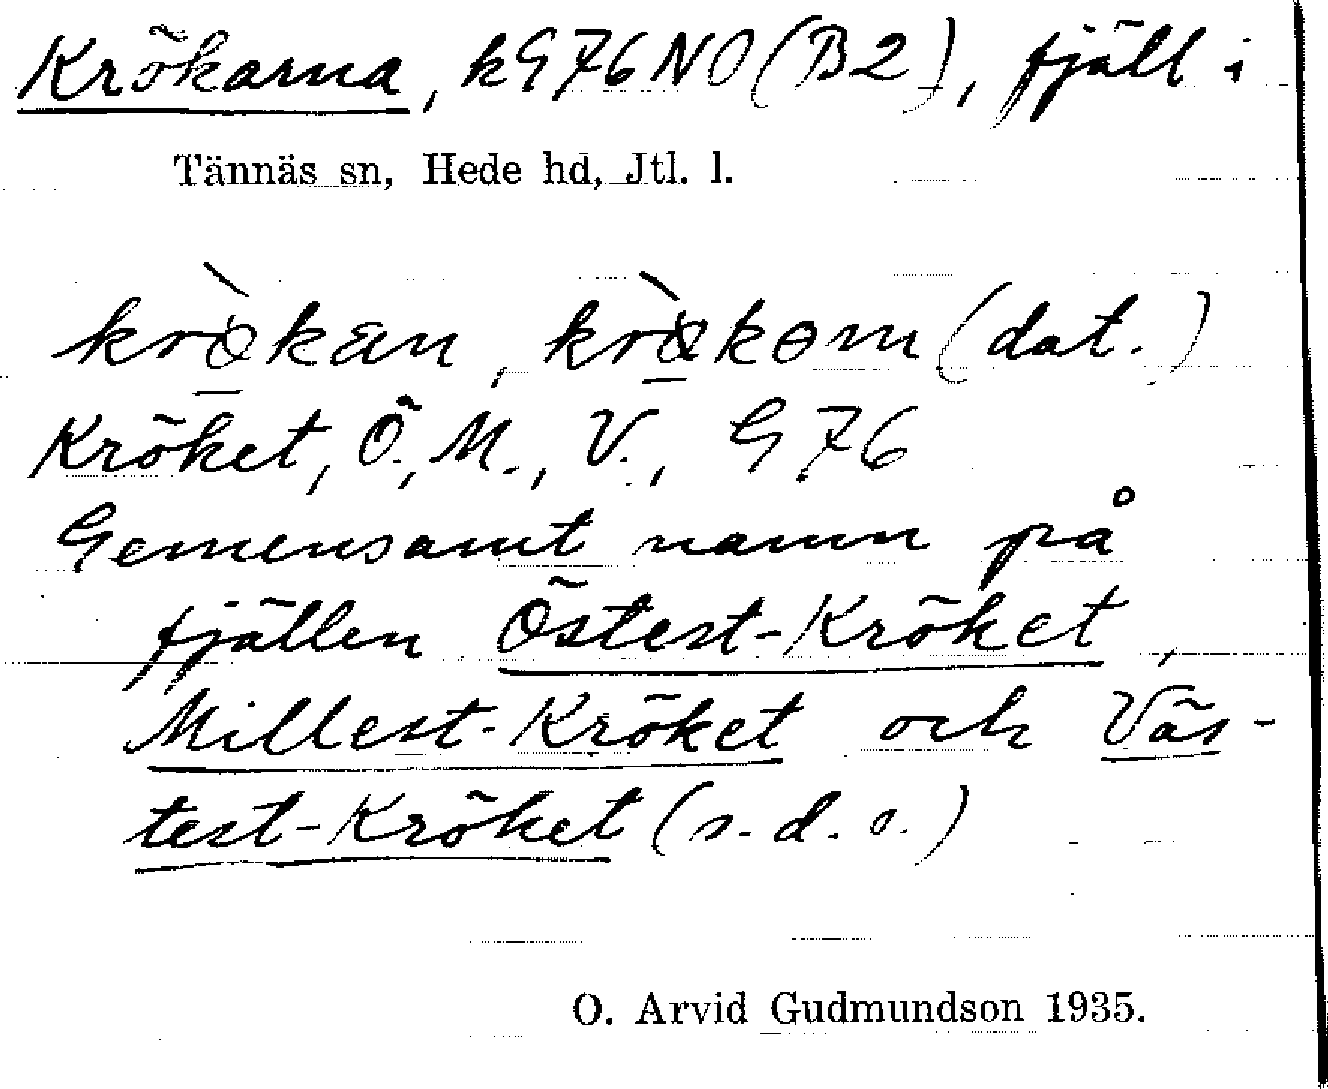 Krökarna, kG76NO(B2), fjäll i
Tännäs sn, Hede hd, Jtl. l.
krø̀kan, krø̀kom (dat.)
Kröket, Ö., M., V., G76
Gemensamt namn på
fjällen Östest-Kröket,
Millest-Kröket och Väs-
test-Kröket (s.d.o.)
O. Arvid Gudmundson 1935.